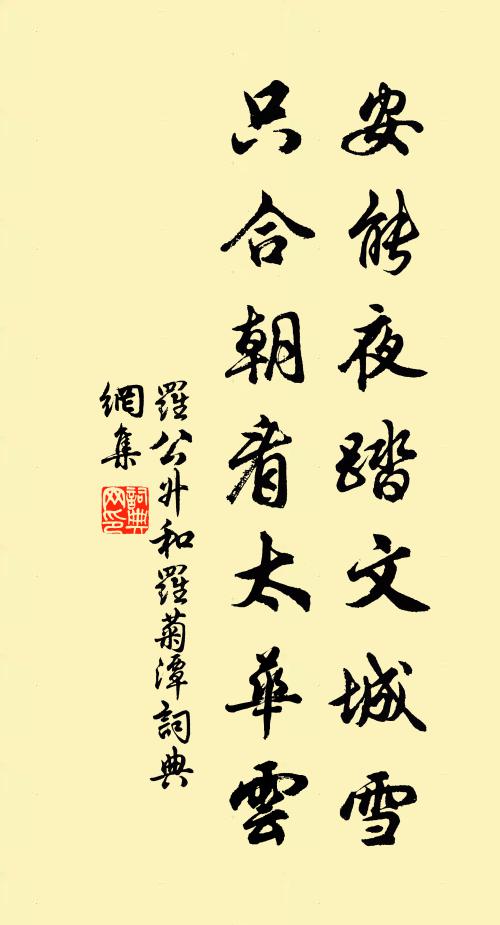 安能夜踏文城雪
只合朝看太華雲
羅公升和羅菊潭詞典
網集
詞典
网印